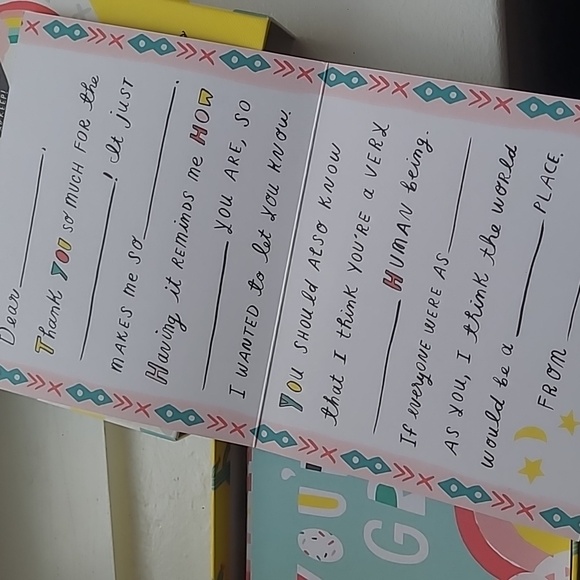 Dear ________,
Thank YOU so much FOR the
________! It just
makes me so ________.
Having it reminds me HOW
________ YOU ARE, SO
I WANTED to let YOU KNOW.
YOU SHOULD ALSO KNOW
that I think YOU'RE a VERY
________ HUMAN being.
If everyone were as ________
AS YOU, I think the world
would be a ________ PLACE.
FROM ________
YOU'